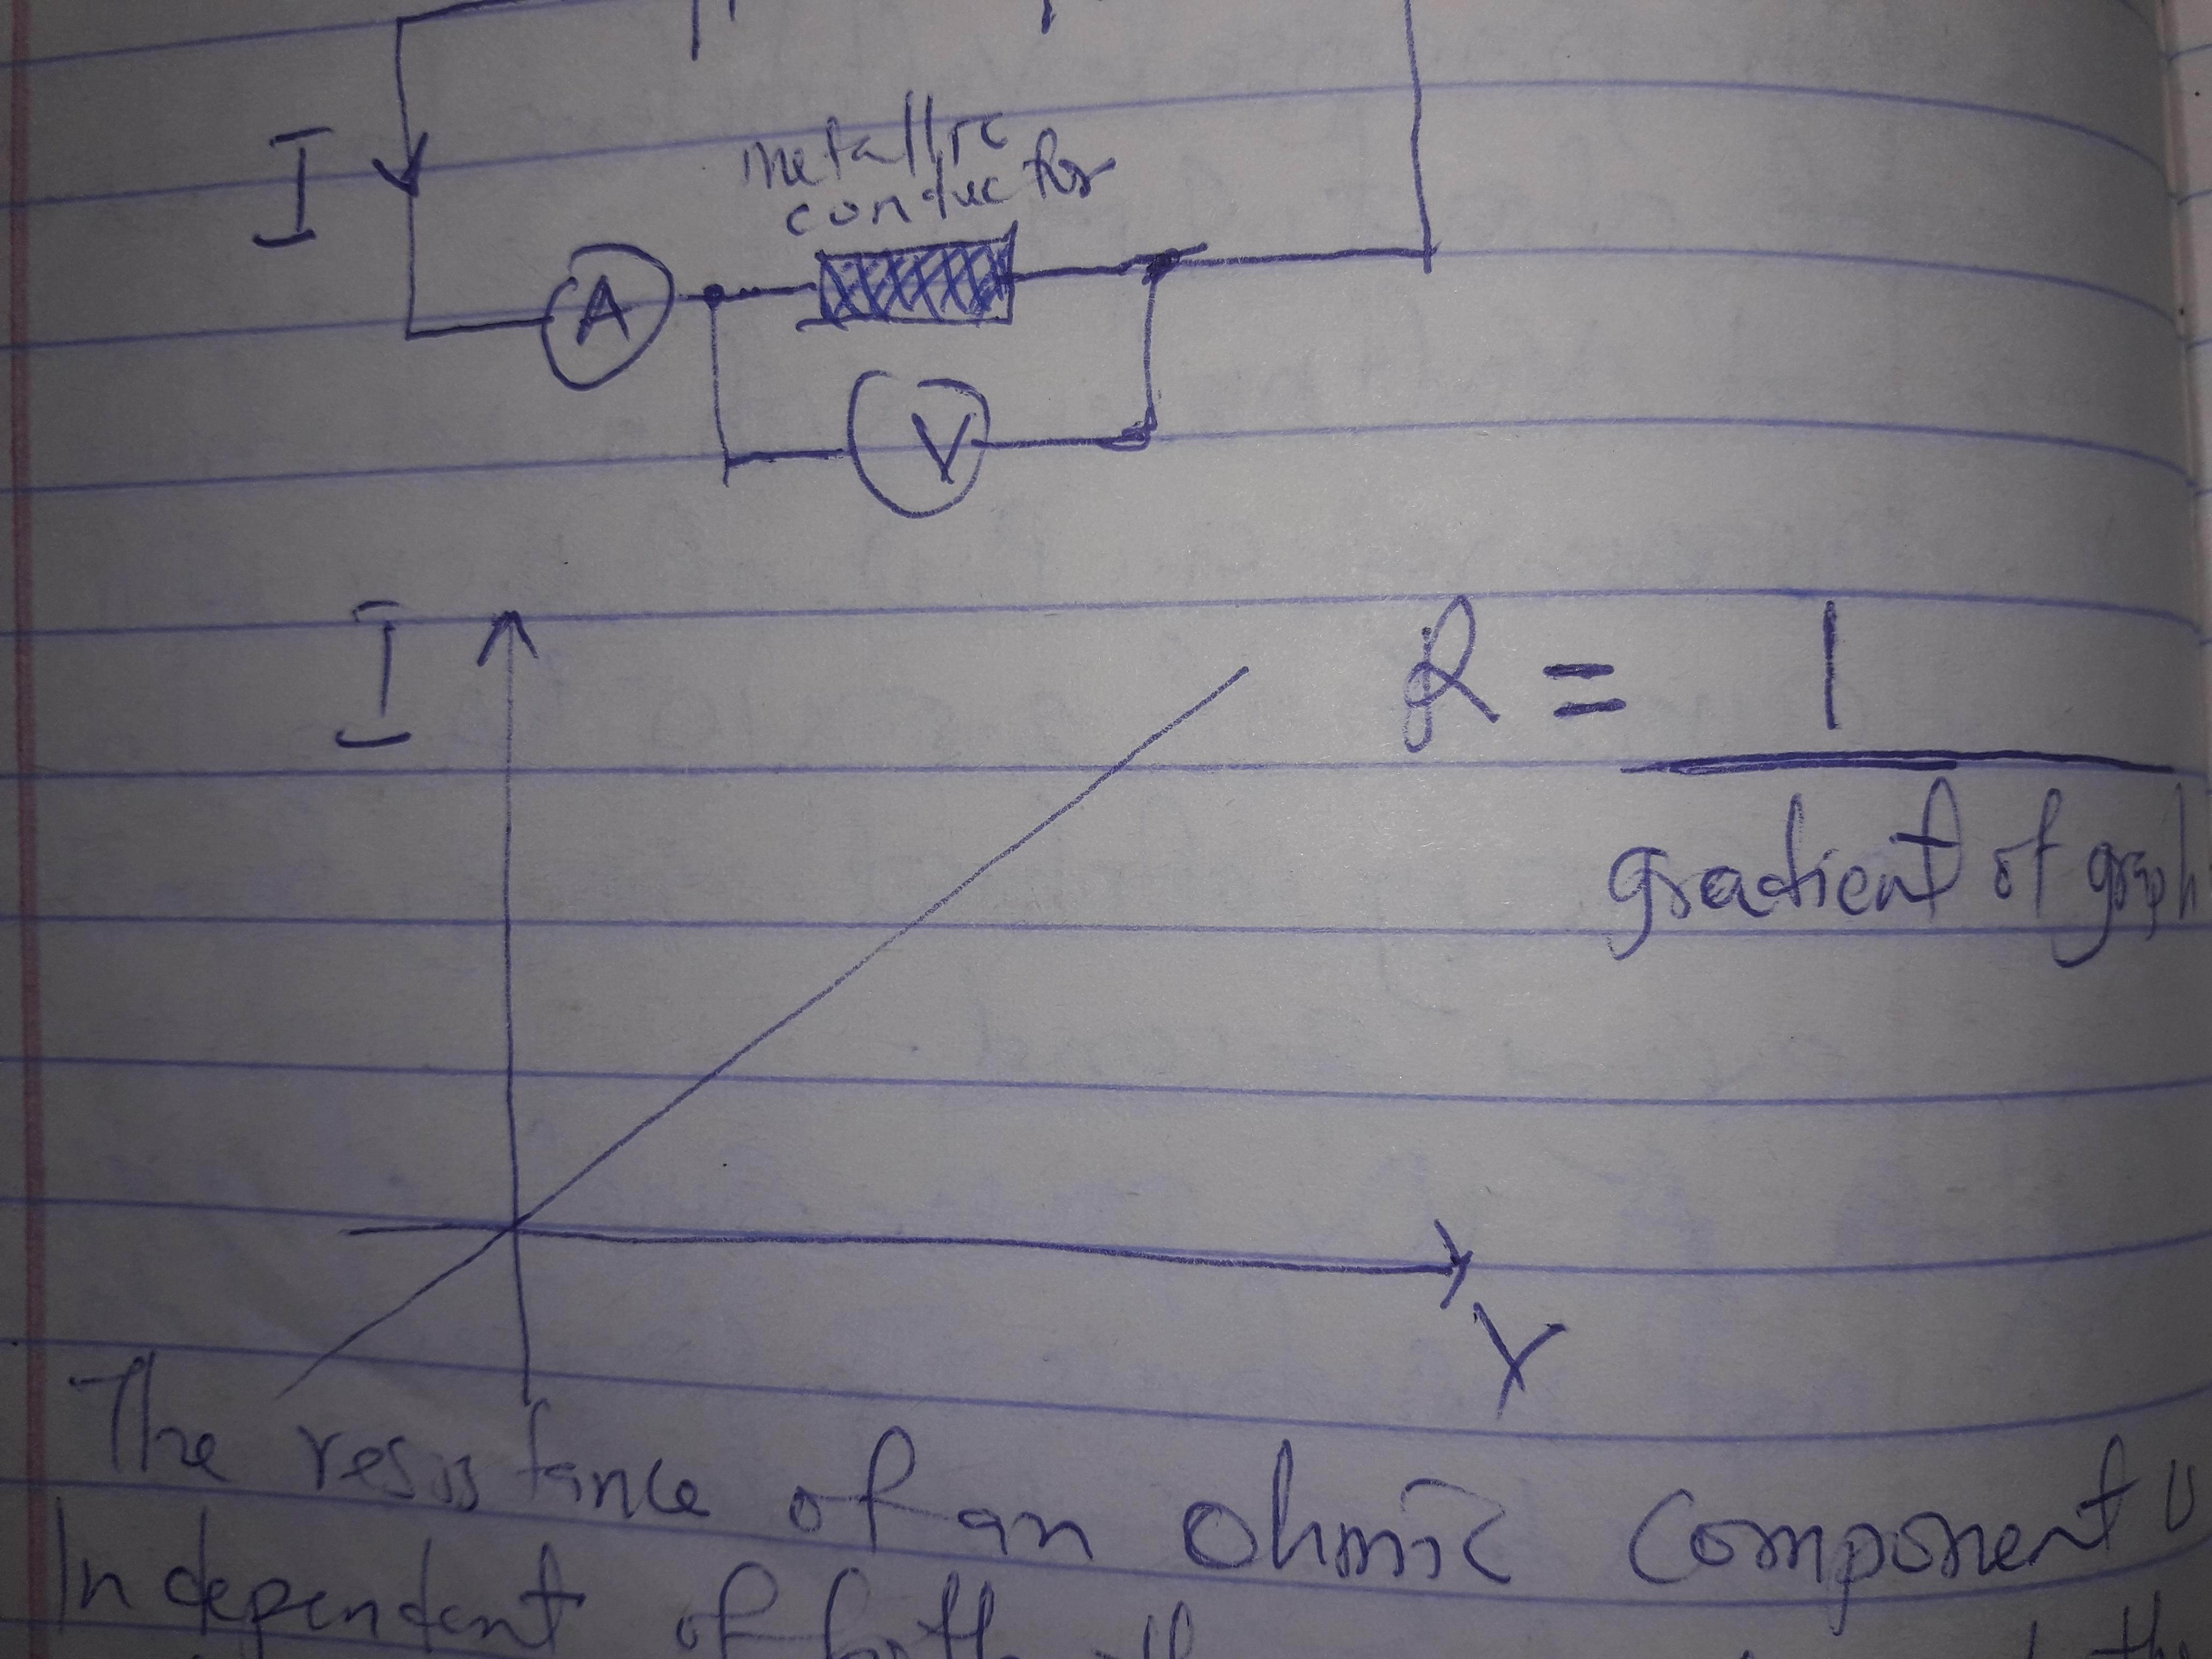 I
metallic
conductor
A
V
I
R = 1
gradient of graph
V
The resistance of an ohmic component
Independent of both the